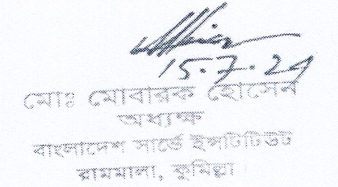 15.7.24
মোঃ মোবারক হোসেন
অধ্যক্ষ
বাংলাদেশ সার্ভে ইন্সটিটিউট
রামমালা, কুমিল্লা।